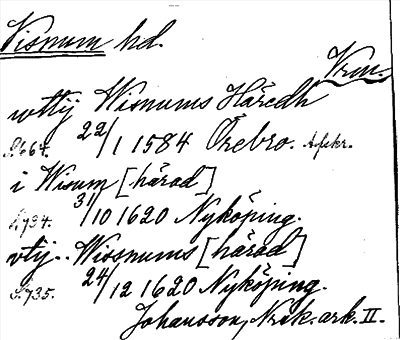 Visnum hd.
Vrm.
uttij Wisnums Häredh
S. 667. 22/1 1584 Örebro. Afskr.
i Wisum [härad]
S. 734. 31/10 1620 Nyköping.
vtij.. Wissnums [härad]
S. 735. 24/12 1620 Nyköping.
Johansson, Nrk. ark. II.